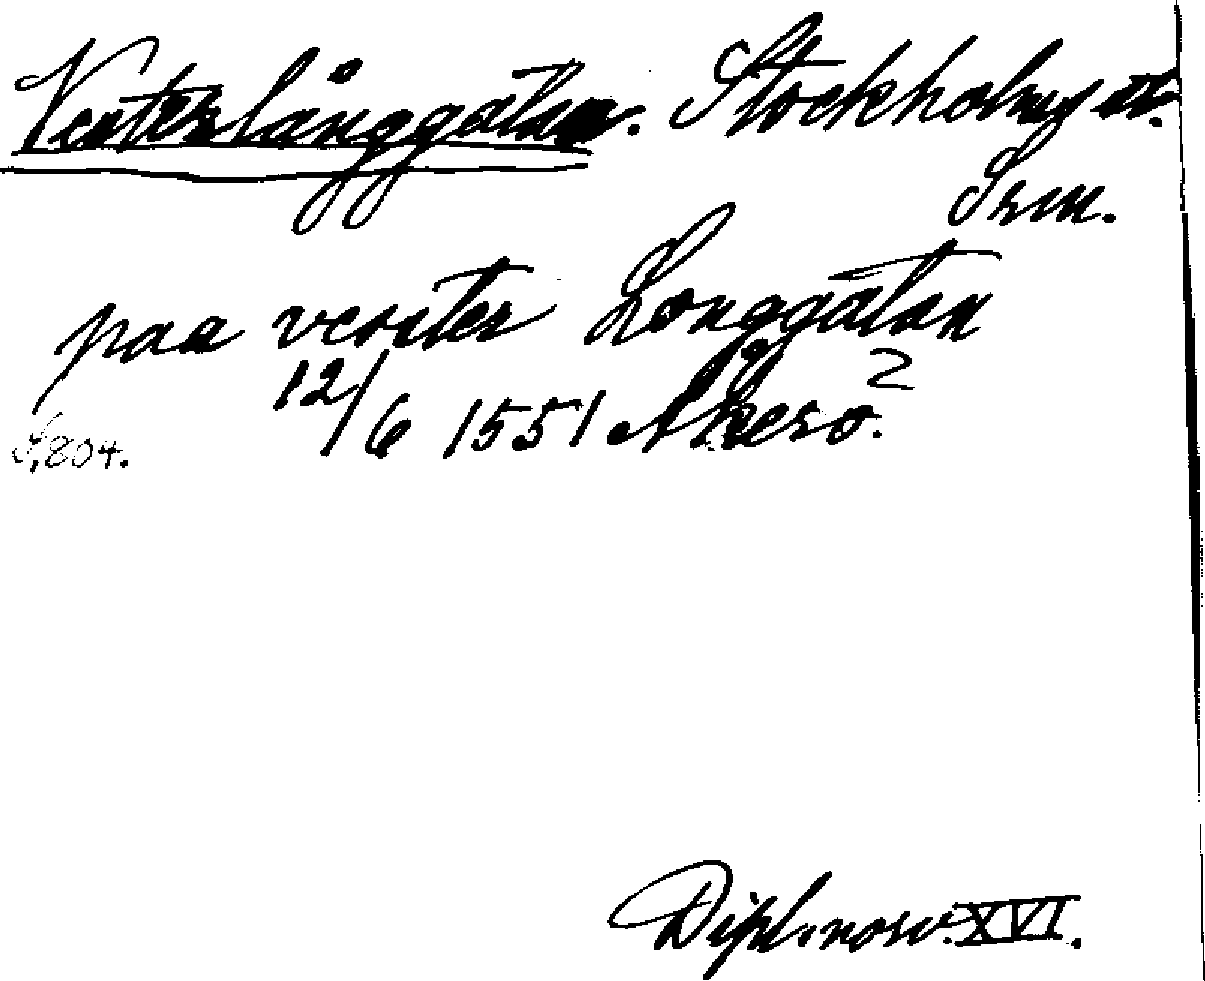 Vesterlånggatan. Stockholms st.
Srm.
paa vester Longgatan
12/6 1551 Akerø. 2
S. 804.
Dipl. norv. XVI.